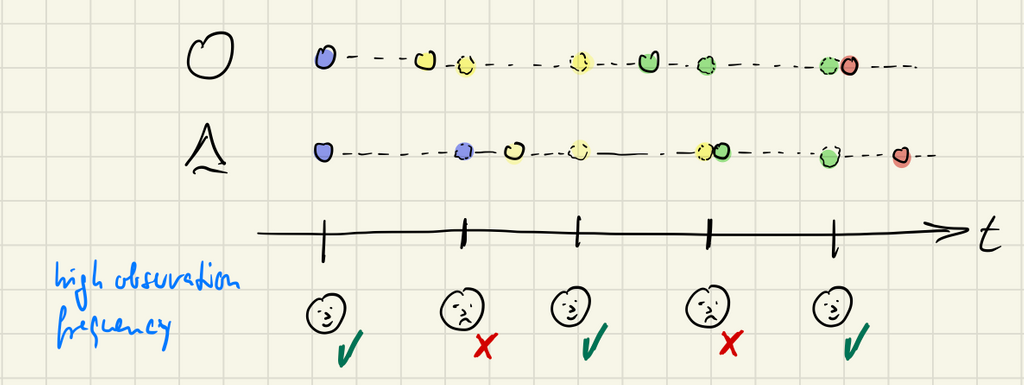 t
high obsuvation
frequency